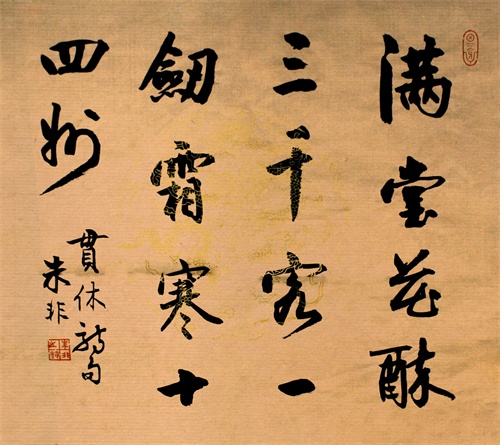 满堂花酔
三千客一
劒霜寒十
四州
貫休詩句
朱非